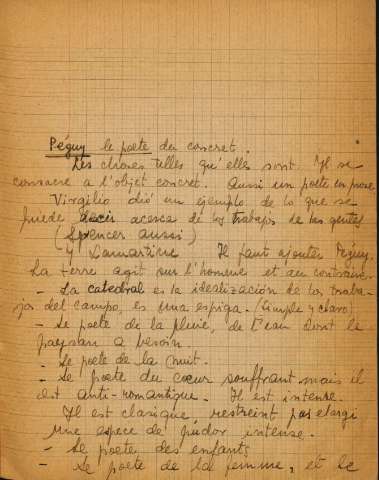 Péguy le poète du concret.
Les choses telles qu'elles sont. Il se
consacre a l'objet concret. Aussi un poète en prose
Virgilio dió un ejemplo de lo que se
puede decir acerca de los trabajos de las gentes
(Spencer aussi)
Y Lamartine Il faut ajouter Péguy.
La terre agit sur l'homme et au contraire.
- La catedral es la idealización de los traba-
jos del campo, es una espiga. (Simple y claro)
- Le poète de la pluie, de l'eau dont le
paysan a besoin.
- Le poète de la nuit.
- Le poète du cœur souffrant mais il
est anti-romantique. Il est intense.
Il est clasique, restreint pas elargi
Une espece de pudor intense.
- Le poète des enfants
- Le poète de la femme, et le